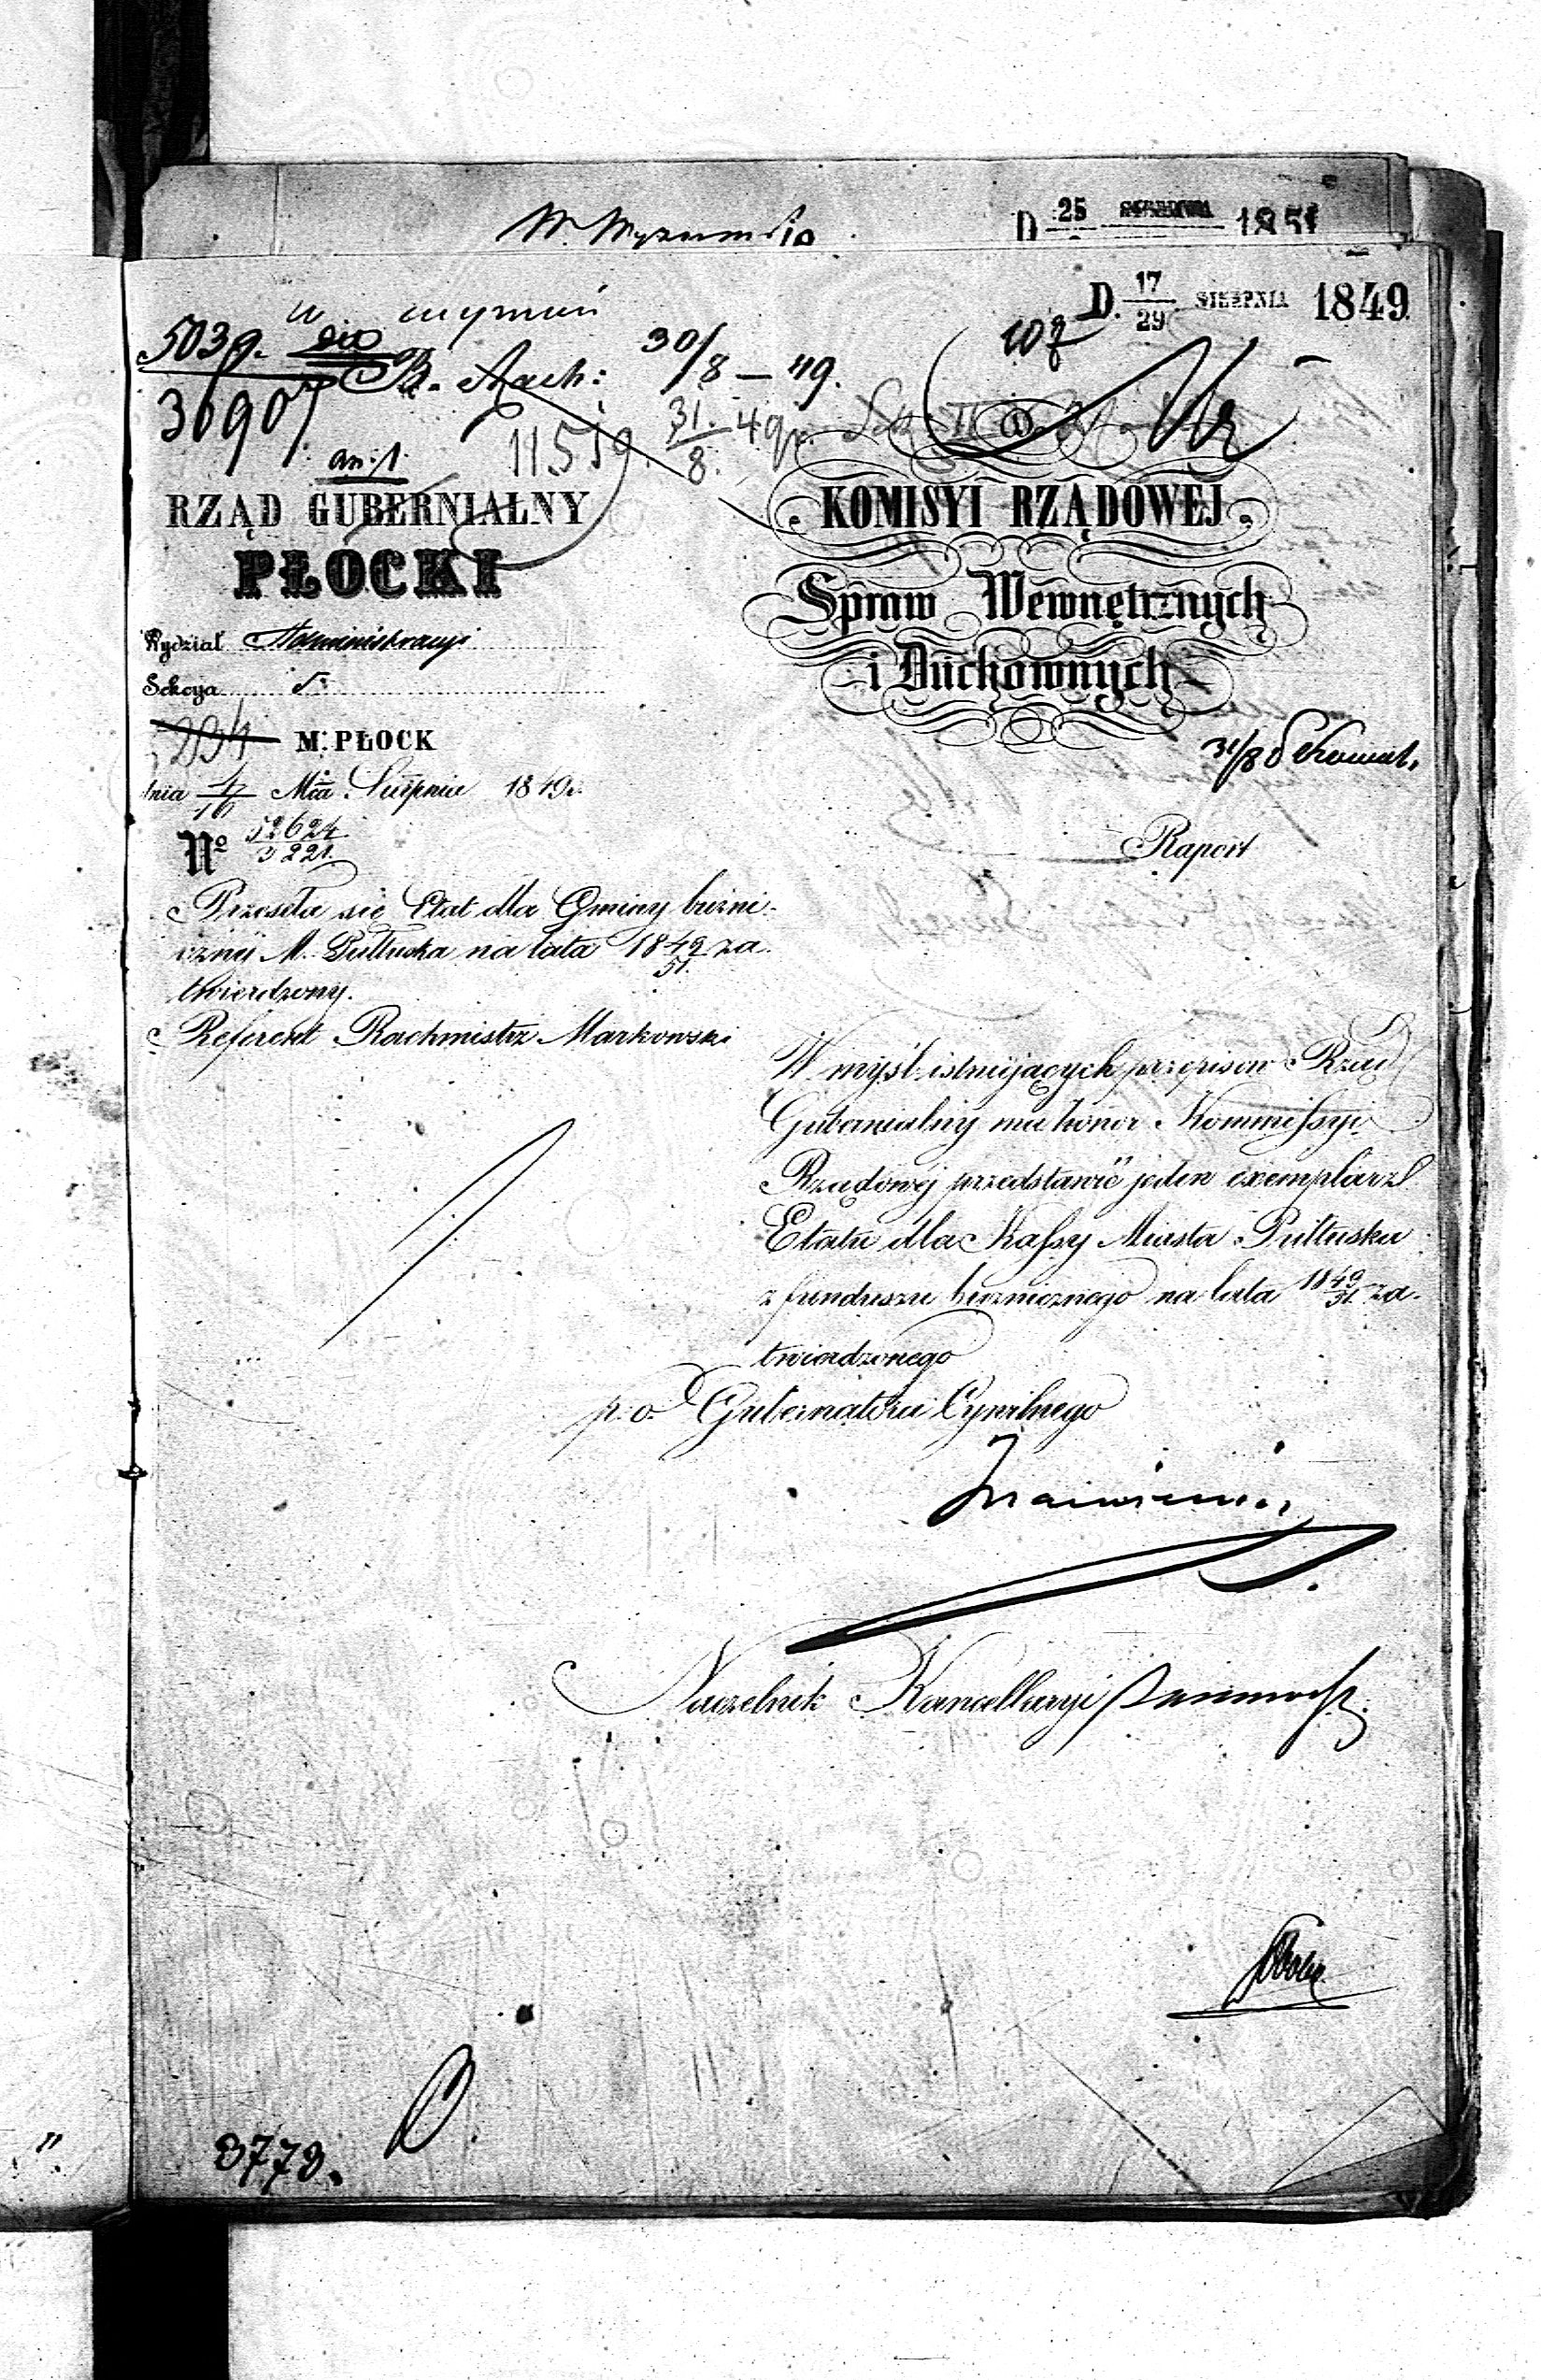 D 25 1851
D. 17/29 SIERPNIA 1849
107
5039.
30/8 – 49.
30907
11559. 31/8. 49
an: 1.
RZĄD GUBERNIALNY
PŁOCKI
Wydział Administracyi
Sekcya
234 M. PŁOCK
dnia 4/16 Mca Sierpnia 1849 r.
No 52624/3221.
Przeseła się Etat dla Gminy bużni-
cznéj M. Pułtuska na lata 1849/51. za
twierdzony.
Referent Rachmistrz Markowski
KOMISYI RZĄDOWÉJ
Spraw Wewnętrznych
i Duchownych
31/8
Raport
W myśl istniejących przepisow Rząd
Gubernialny ma honor Kommissyi
Rządowéj przedstawić jeden exemplarz
Etatu dla Kassy Miasta Pułtuska
z funduszu bużnicznego na lata 1849/51. za-
twierdzonego
p. o. Gubernatora Cywilnego
Naczelnik Kancellaryi
3779.